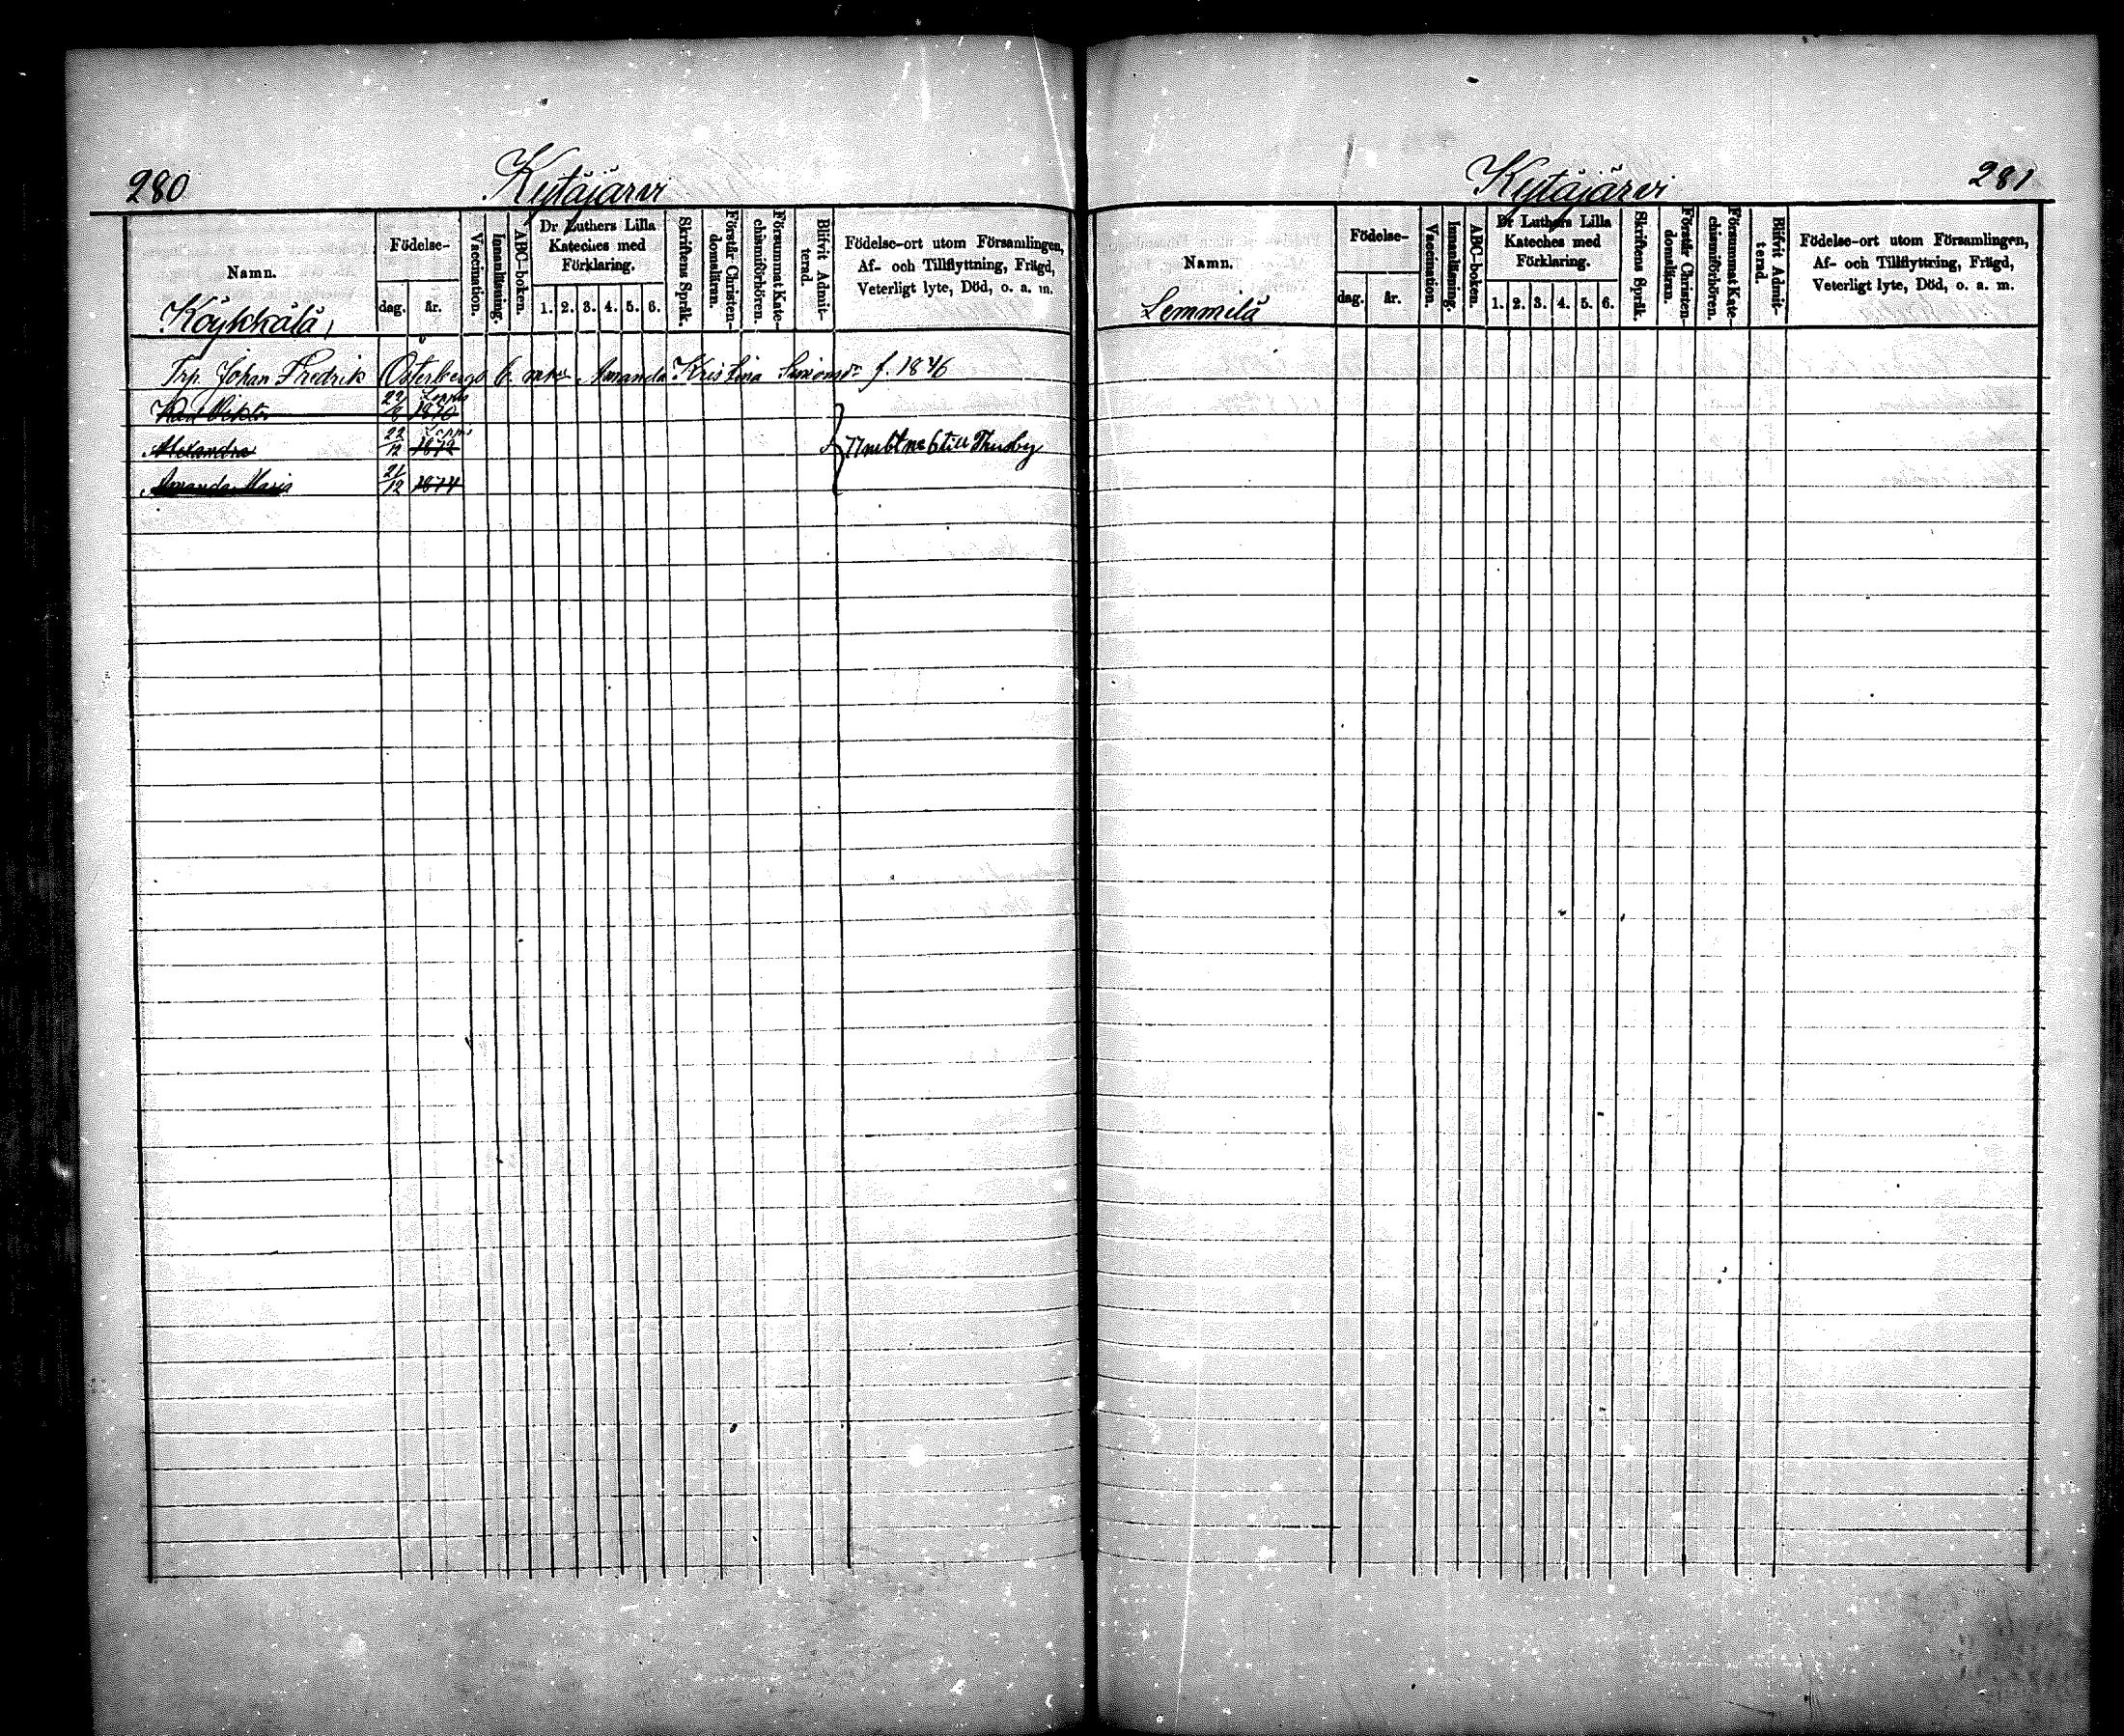 280
Kytäjärvi
Namn.
Födelse-
dag.
år.
Vaccination.
Innanläsning.
ABC-boken.
Dr Luthers Lilla
Kateches med
Förklaring.
1. 2. 3. 4. 5. 6.
Skriftens Språk.
Förstår Christen-
domsläran.
Försummat Kate-
chismiförhören.
Blifvit Admit-
terad.
Födelse-ort utom Församlingen,
Af- och Tillflyttning, Frägd,
Veterligt lyte, Död, o. a. m.
Köykkälä,
Trp. Johan Fredrik Österbergs Amanda Kristina Simonsdr f. 1846
Karl Viktor 22/8 Loppis 1870
Alexandra 22/12 Loppis 1872
Amanda Maria 21/12 1874
Umbt No 6 till Thusby
Kytäjärvi
281
Namn.
Födelse-
dag.
år.
Vaccination.
Innanläsning.
ABC-boken.
Dr Luthers Lilla
Kateches med
Förklaring.
1. 2. 3. 4. 5. 6.
Skriftens Språk.
Förstår Christen-
domsläran.
Försummat Kate-
chismiförhören.
Blifvit Admit-
terad.
Födelse-ort utom Församlingen,
Af- och Tillflyttning, Frägd,
Veterligt lyte, Död, o. a. m.
Lemmelä